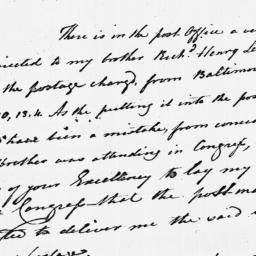 There is in the post Office a ve
irected to my brother Rich.d Henry Le
the postage charg'd, from Baltimor
0,13,4. As the putting it into the pos
have been a mistake, from concei
brother was attending in Congress,
of your Excellency to lay my
Congress that the post ma
ted to deliver me the said